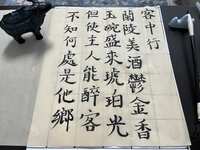 客中行
蘭陵美酒鬱金香
玉碗盛來琥珀光
但使主人能醉客
不知何處是他鄉